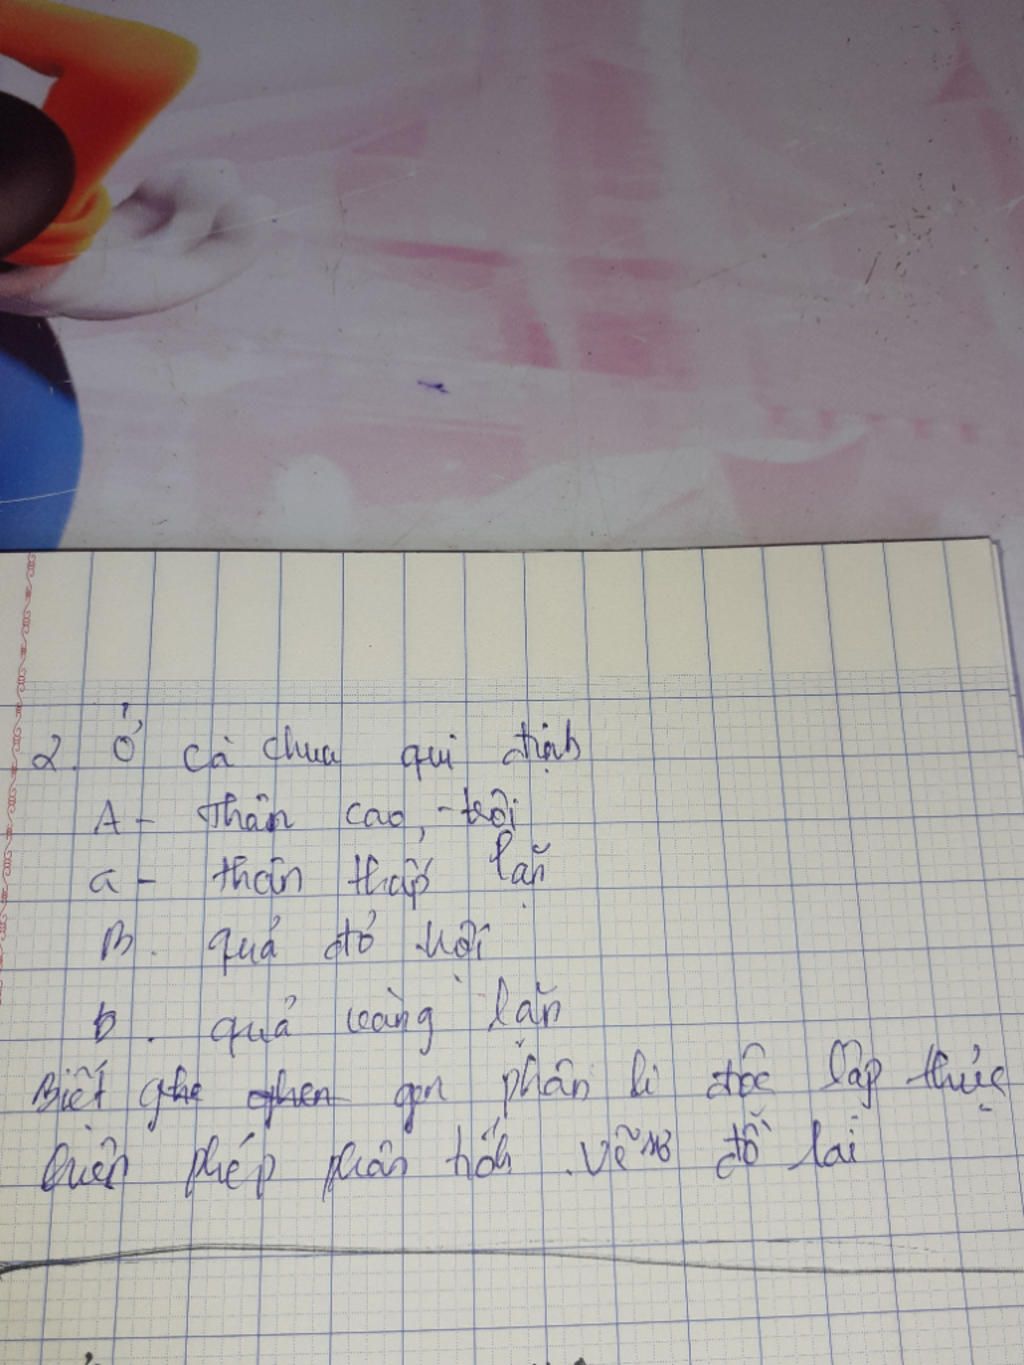 2. Ở cà chua qui định
A - Thân cao, - trội
a - thân thấp lặn
B. quả đỏ trội
b. quả vàng lặn
Biết ghe ghen gen phân li độc lập thực
hiện phép phân tích. Vẽ sơ đồ lai